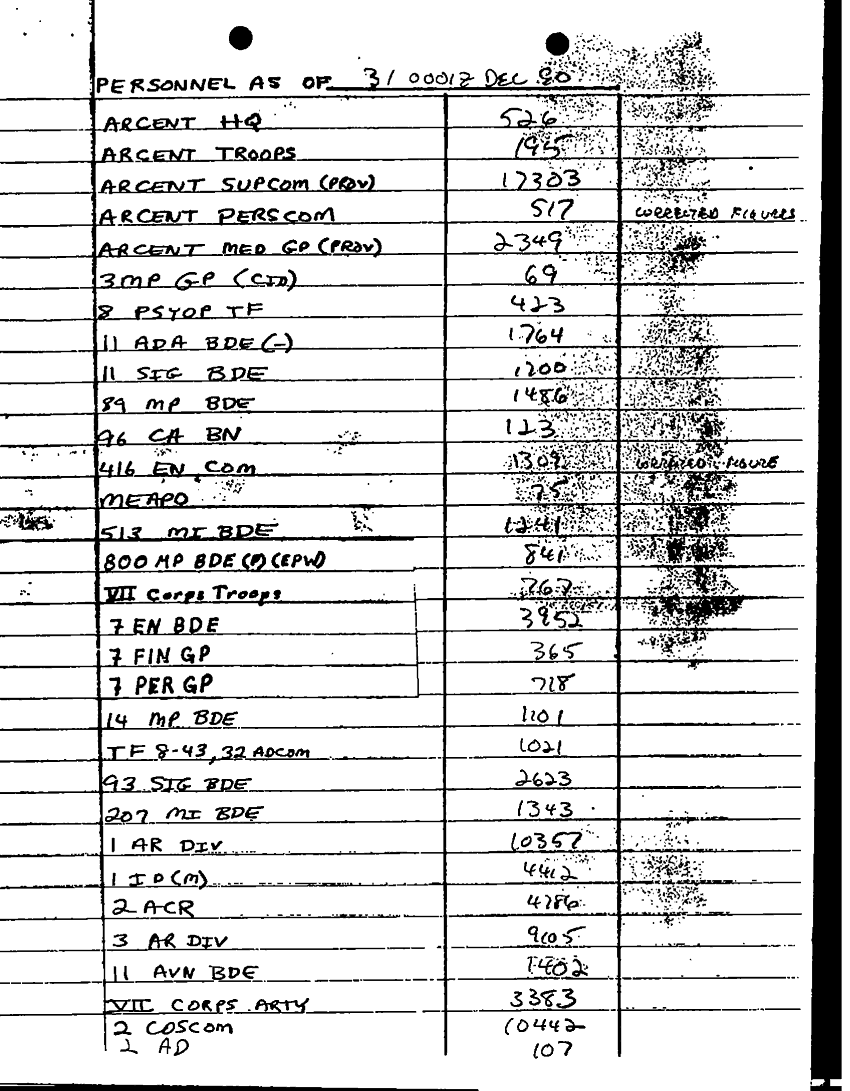 PERSONNEL AS OF 310001Z DEC 90
ARCENT HQ 526
ARCENT TROOPS 195
ARCENT SUPCOM (PROV) 17303
ARCENT PERSCOM 517 CORRECTED FIGURES
ARCENT MED GP (PROV) 2349
3 MP GP (CID) 69
8 PSYOP TF 423
11 ADA BDE (-) 1764
11 SIG BDE 1200
89 MP BDE 1486
96 CA BN 123
416 EN COM 1309 FIGURE
MEAPO 75
513 MI BDE 1241
800 MP BDE (P) (EPW) 841
VII Corps Troops 767
7 EN BDE 3952
7 FIN GP 365
7 PER GP 718
14 MP BDE 1101
TF 8-43, 32 ADCOM 1021
93 SIG BDE 2623
207 MI BDE 1343
1 AR DIV 10357
1 ID (M) 4412
2 ACR 4786
3 AR DIV 9105
11 AVN BDE 1402
VII CORPS ARTY 3383
2 COSCOM 10442
2 AD 107